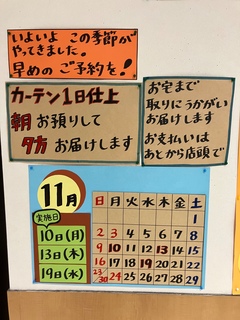 いよいよ この季節が
やってきました。
早めの ご予約を!
カーテン1日仕上
朝 お預りして
夕方 お届けします
お宅まで
取りにうかがい
お届けします
お支払いは
あとから店頭で
11月
実施日
10日(月)
13日(木)
19日(水)
日 月 火 水 木 金 土
1
2 3 4 5 6 7 8
9 10 11 12 13 14 15
16 17 18 19 20 21 22
23/30 24 25 26 27 28 29